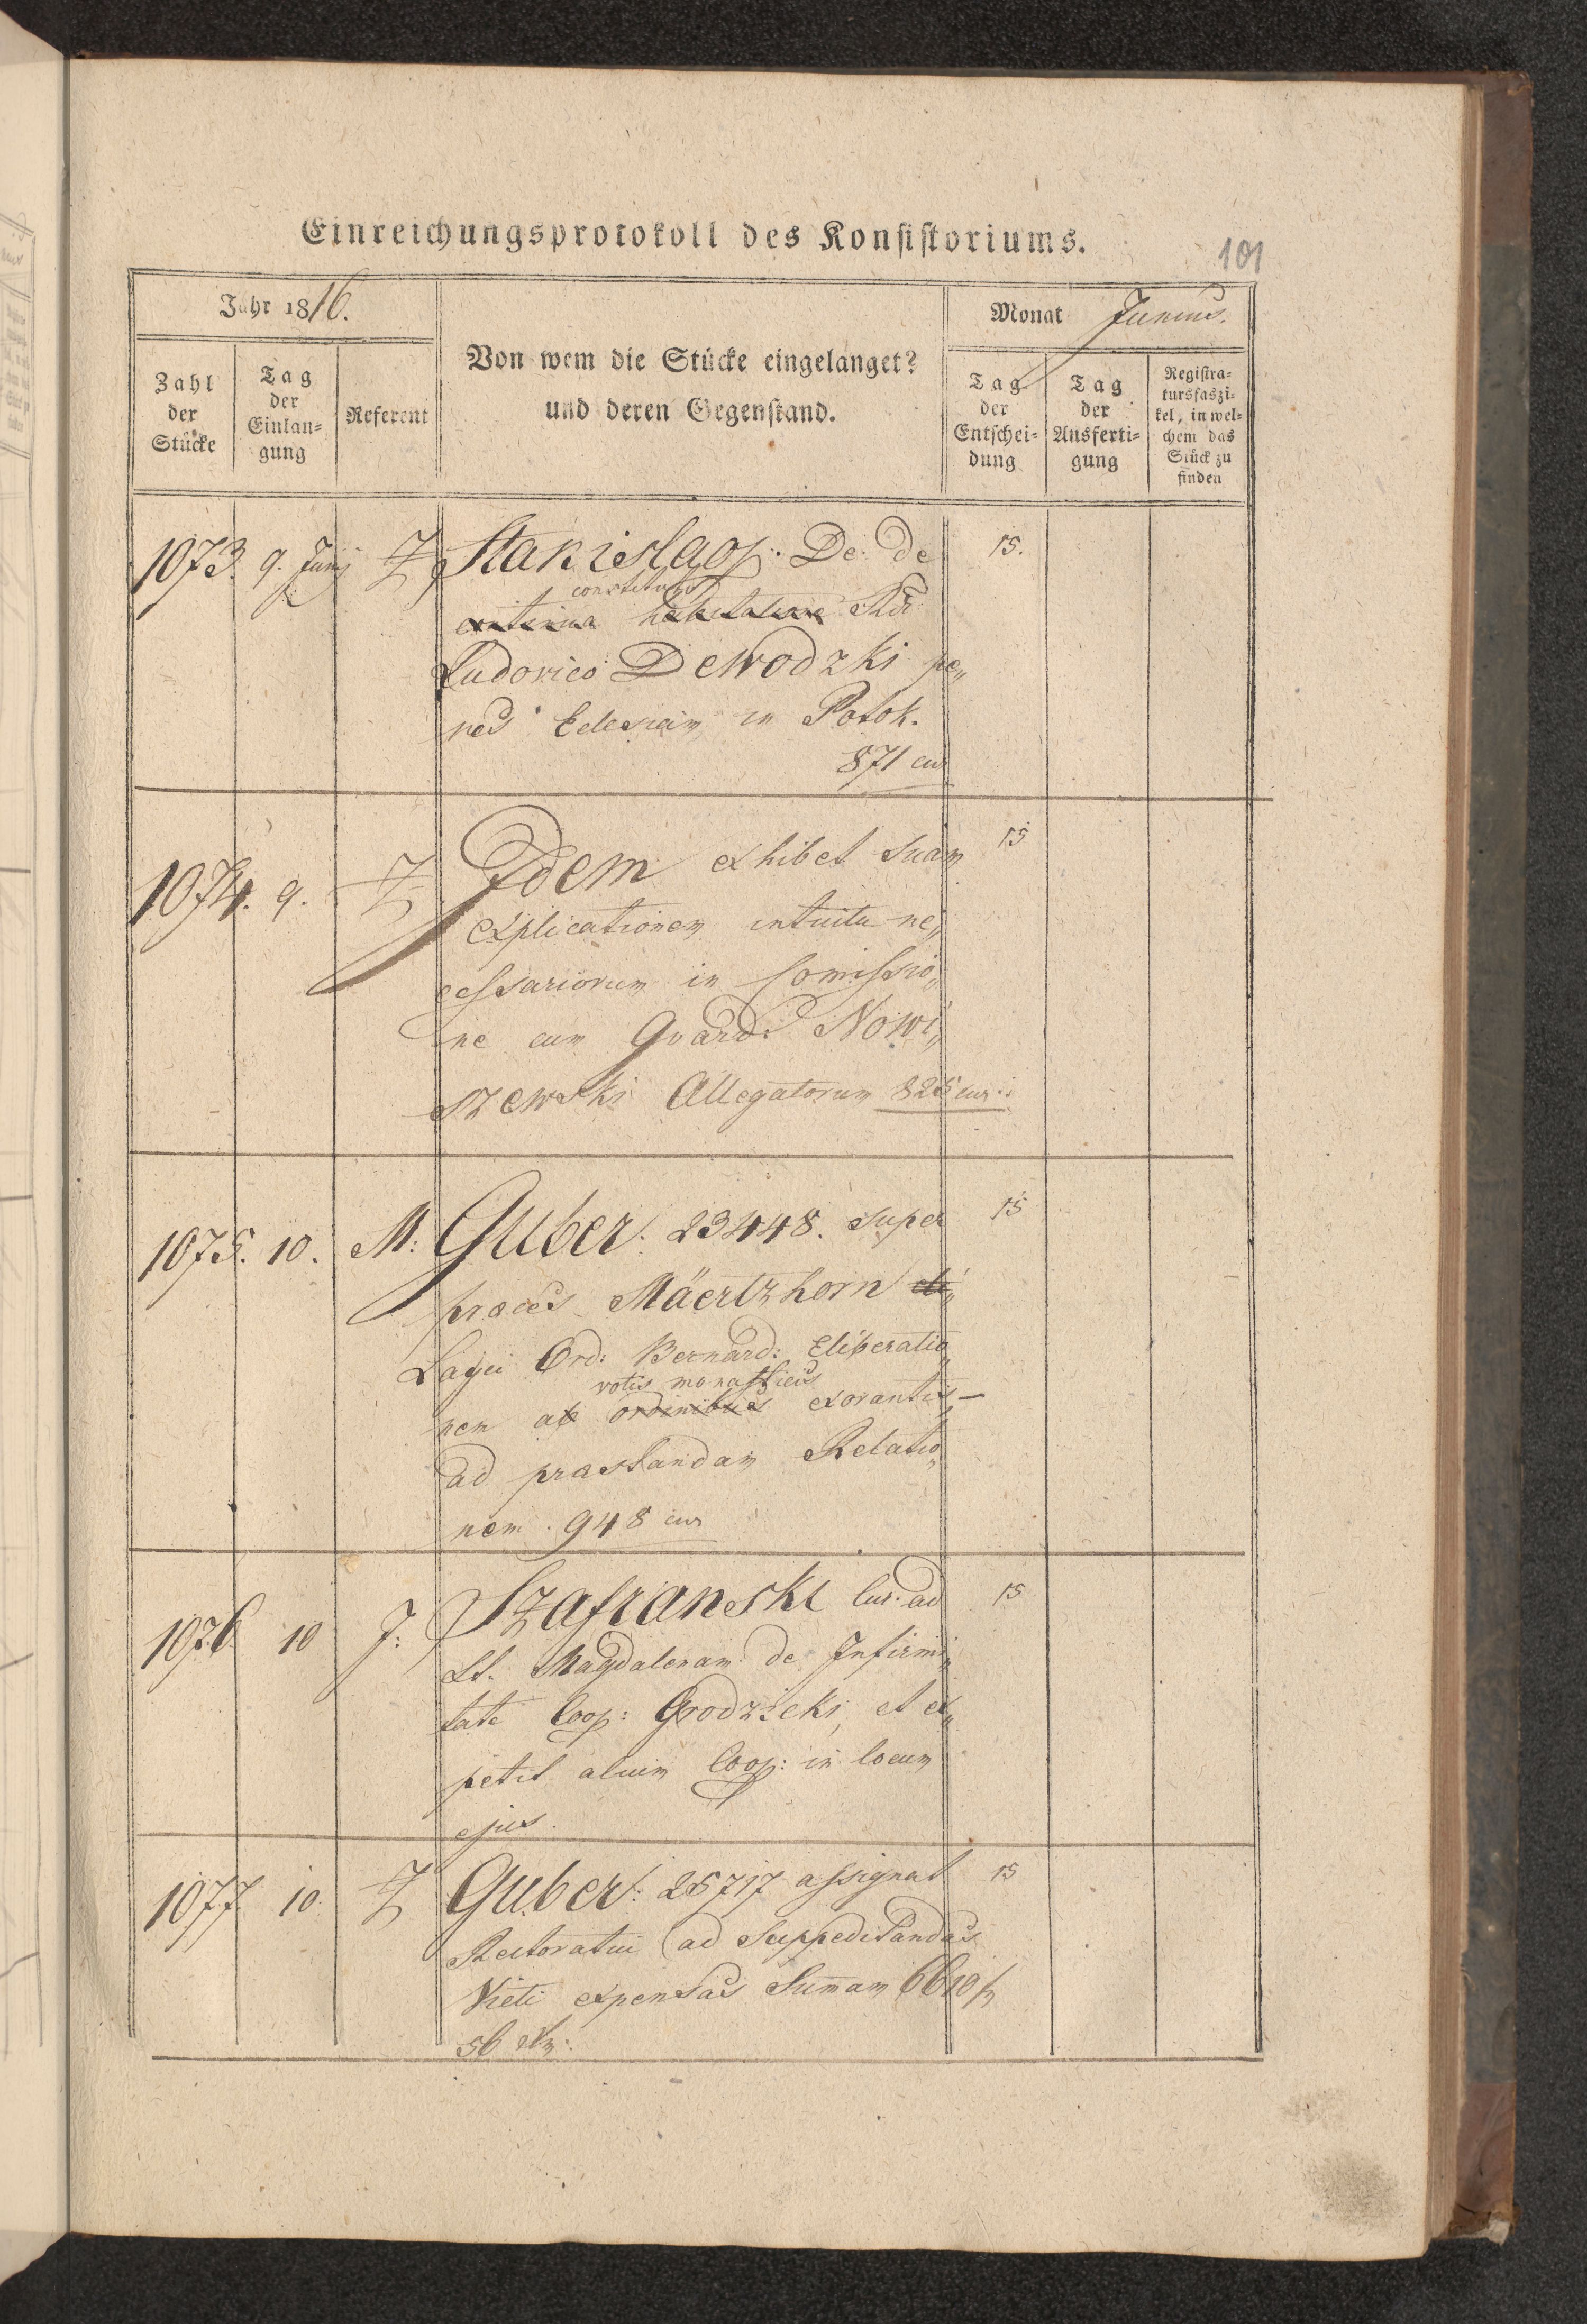 Einreichungsprotokoll des Konsistoriums.
101
Jahr 1816.
Monat Junius.
Zahl der Stücke
Tag der Einlan= gung
Referent
Von wem die Stücke eingelanget?
und deren Gegenstand.
Tag der Entschei= dung
Tag der Ausferti= gung
Registra= tursfaszi= kel, in wel= chem das Stück zu finden
1073. 9. Junj Z Stanislaop: De: de 15.
constituto
Ludovico Dewodzki pe„
nes Eclesiam in Potok.
871 cur
1074. 9. Z Idem exhibet suam 15
explicationem intuitu ne„
cessariorum in Comissio„
ne cum Guard: Nowi„
szewski Allegatorum 826 cur:
1075. 10. M: Guber: 23448. super 15
preces Mäertzhorn
Layci Ord: Bernard: Eliberatio„
votis monasticis
nem ab ordinibus exorantis —
ad praestandam Relatio„
nem. 948 cur
1076 10 J: Szafranski Cur: ad 15
St. Magdalenam de Infirmi„
tate Coop: Grodzicki, et ex„
petit alium Coop: in locum
ejus.
1077. 10. Z Guber: 25717 assignat 15
Rectoratui ad suppeditandas
Victi expensas Summam 6610 f
56 xr: